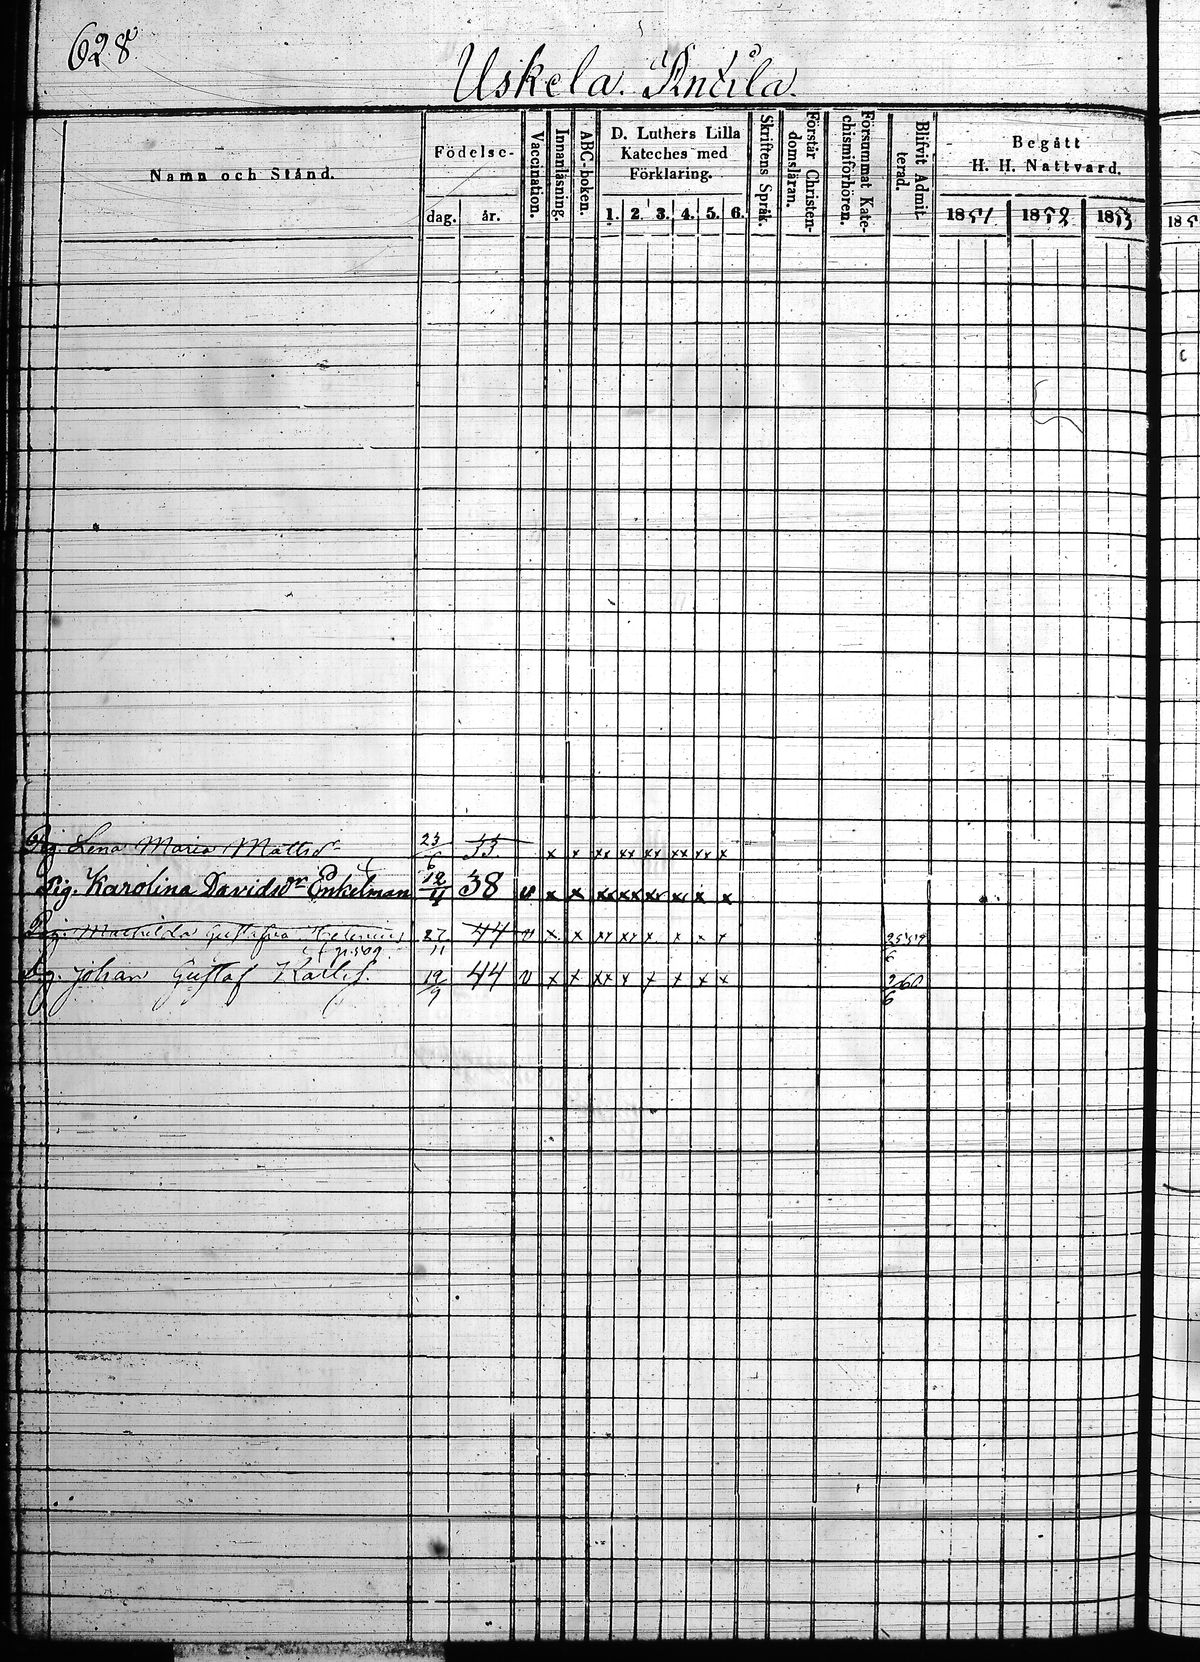 628
Uskela. Anåila.
Namn och Stånd.
Födelse-
dag. år.
Vaccination.
Innanläsning.
ABC-boken.
D. Luthers Lilla
Kateches med
Förklaring.
1. 2. 3. 4. 5. 6.
Skriftens Språk.
Förstår Christen-
domsläran.
Försummat Kate-
chismiförhören.
Blifvit Admit-
terad.
Begått
H. H. Nattvard.
1851 1852 1853
185
Pig. Lena Maria Mattsdr 23/6 33. x x xx xx xx xx xx x
Pig. Karolina Davidsdr Enkelman 12/11 38 v x x xx xx xx xx x x
Pig. Mathilda Gustafva 27/11 44 v x x xx xx x x x x
Dg. Johan Gustaf Karlss. 19/9 44 v x x xx x x x x x 2/6 60